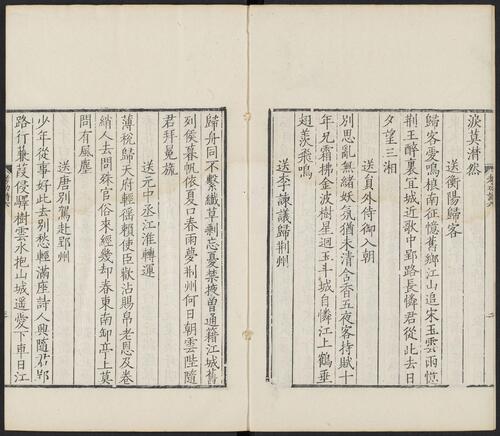 淚莫潸然
送衡陽歸客
歸客愛鳴榔南征憶舊鄉江山追宋玉雲雨憶
荊王醉裏宜城近歌中郢路長憐君從此去日
夕望三湘
送員外侍御入朝
別思亂無緒妖氛猶未清含香五夜客持賦十
年兄霜拂金波樹星迴玉斗城自憐江上鶴垂
翅羨飛鳴
送李諫議歸荊州
歸舟同不繫纖草剩忘憂禁掖曾通籍江城舊
列侯暮帆依夏口春雨夢荊州何日朝雲陛隨
君拜冕旒
送元中丞江淮轉運
薄稅歸天府輕徭賴使臣歡沾賜帛老恩及卷
綃人去問殊官俗來經幾却春東南卸亭上莫
問有風塵
送唐別駕赴郢州
少年從事好此去別愁輕滿座詩人興隨君郢
路行蒹葭侵驛樹雲水抱山城遥愛下車日江